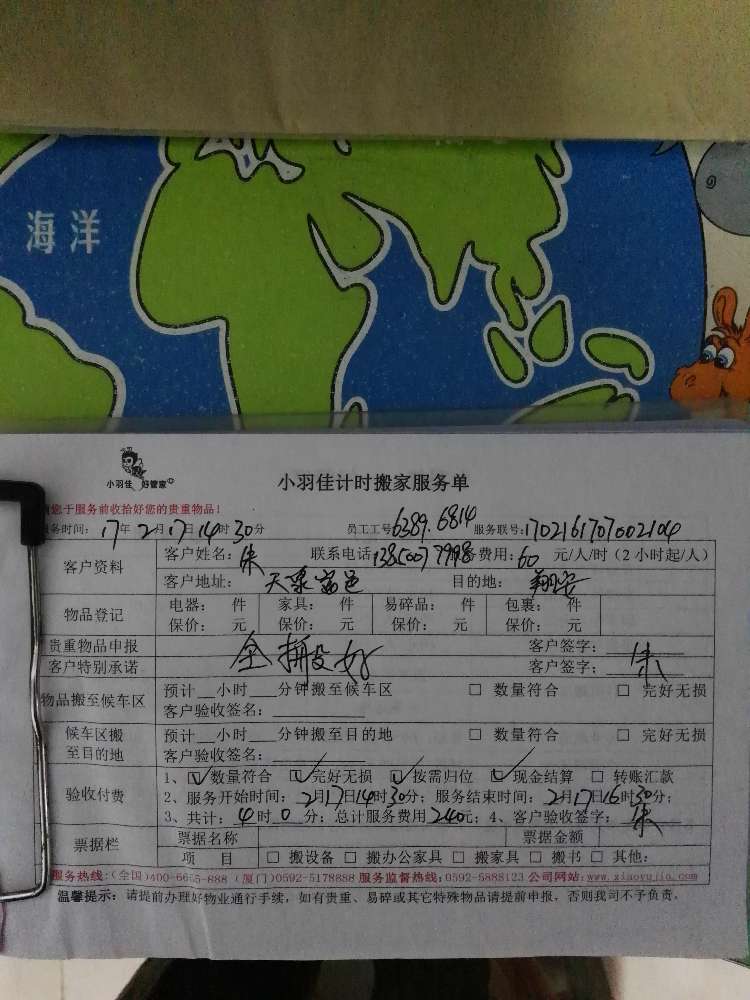 海洋
小羽佳 好管家
小羽佳计时搬家服务单
您于服务前收拾好您的贵重物品!
务时间: 17年2月17日14时30分 员工工号6389.6814 服务联号:1702161707002104
客户资料 客户姓名: 朱 联系电话 务费用: 60 元/人/时(2小时起/人)
客户地址: 天 富邑 目的地: 翔安
物品登记 电器: 件 家具: 件 易碎品: 件 包裹: 件
保价: 元 保价: 元 保价: 元 保价: 元
贵重物品申报 客户签字:
客户特别承诺 全 好 客户签字: 朱
物品搬至候车区 预计__小时___分钟搬至候车区 □ 数量符合 □ 完好无损
客户验收签名:
候车区搬至目的地 预计__小时___分钟搬至目的地 □ 数量符合 □ 完好无损
客户验收签名:
验收付费 1、☑数量符合 ☑完好无损 ☑按需归位 ☑现金结算 □ 转账汇款
2、服务开始时间: 2月17日14时30分; 服务结束时间: 2月17日16时30分;
3、共计: 4时0分; 总计服务费用240元; 4、客户验收签字: 朱
票据栏 票据名称 票据金额
项 目 □ 搬设备 □ 搬办公家具 □ 搬家具 □ 搬书 □ 其他:
服务热线:(全国)400-6655-888 (厦门)0592-5178888 服务监督热线:0592-5888123 公司网站:www.xiaoyujia.com
温馨提示: 请提前办理好物业通行手续, 如有贵重、易碎或其它特殊物品请提前申报, 否则我司不予负责。